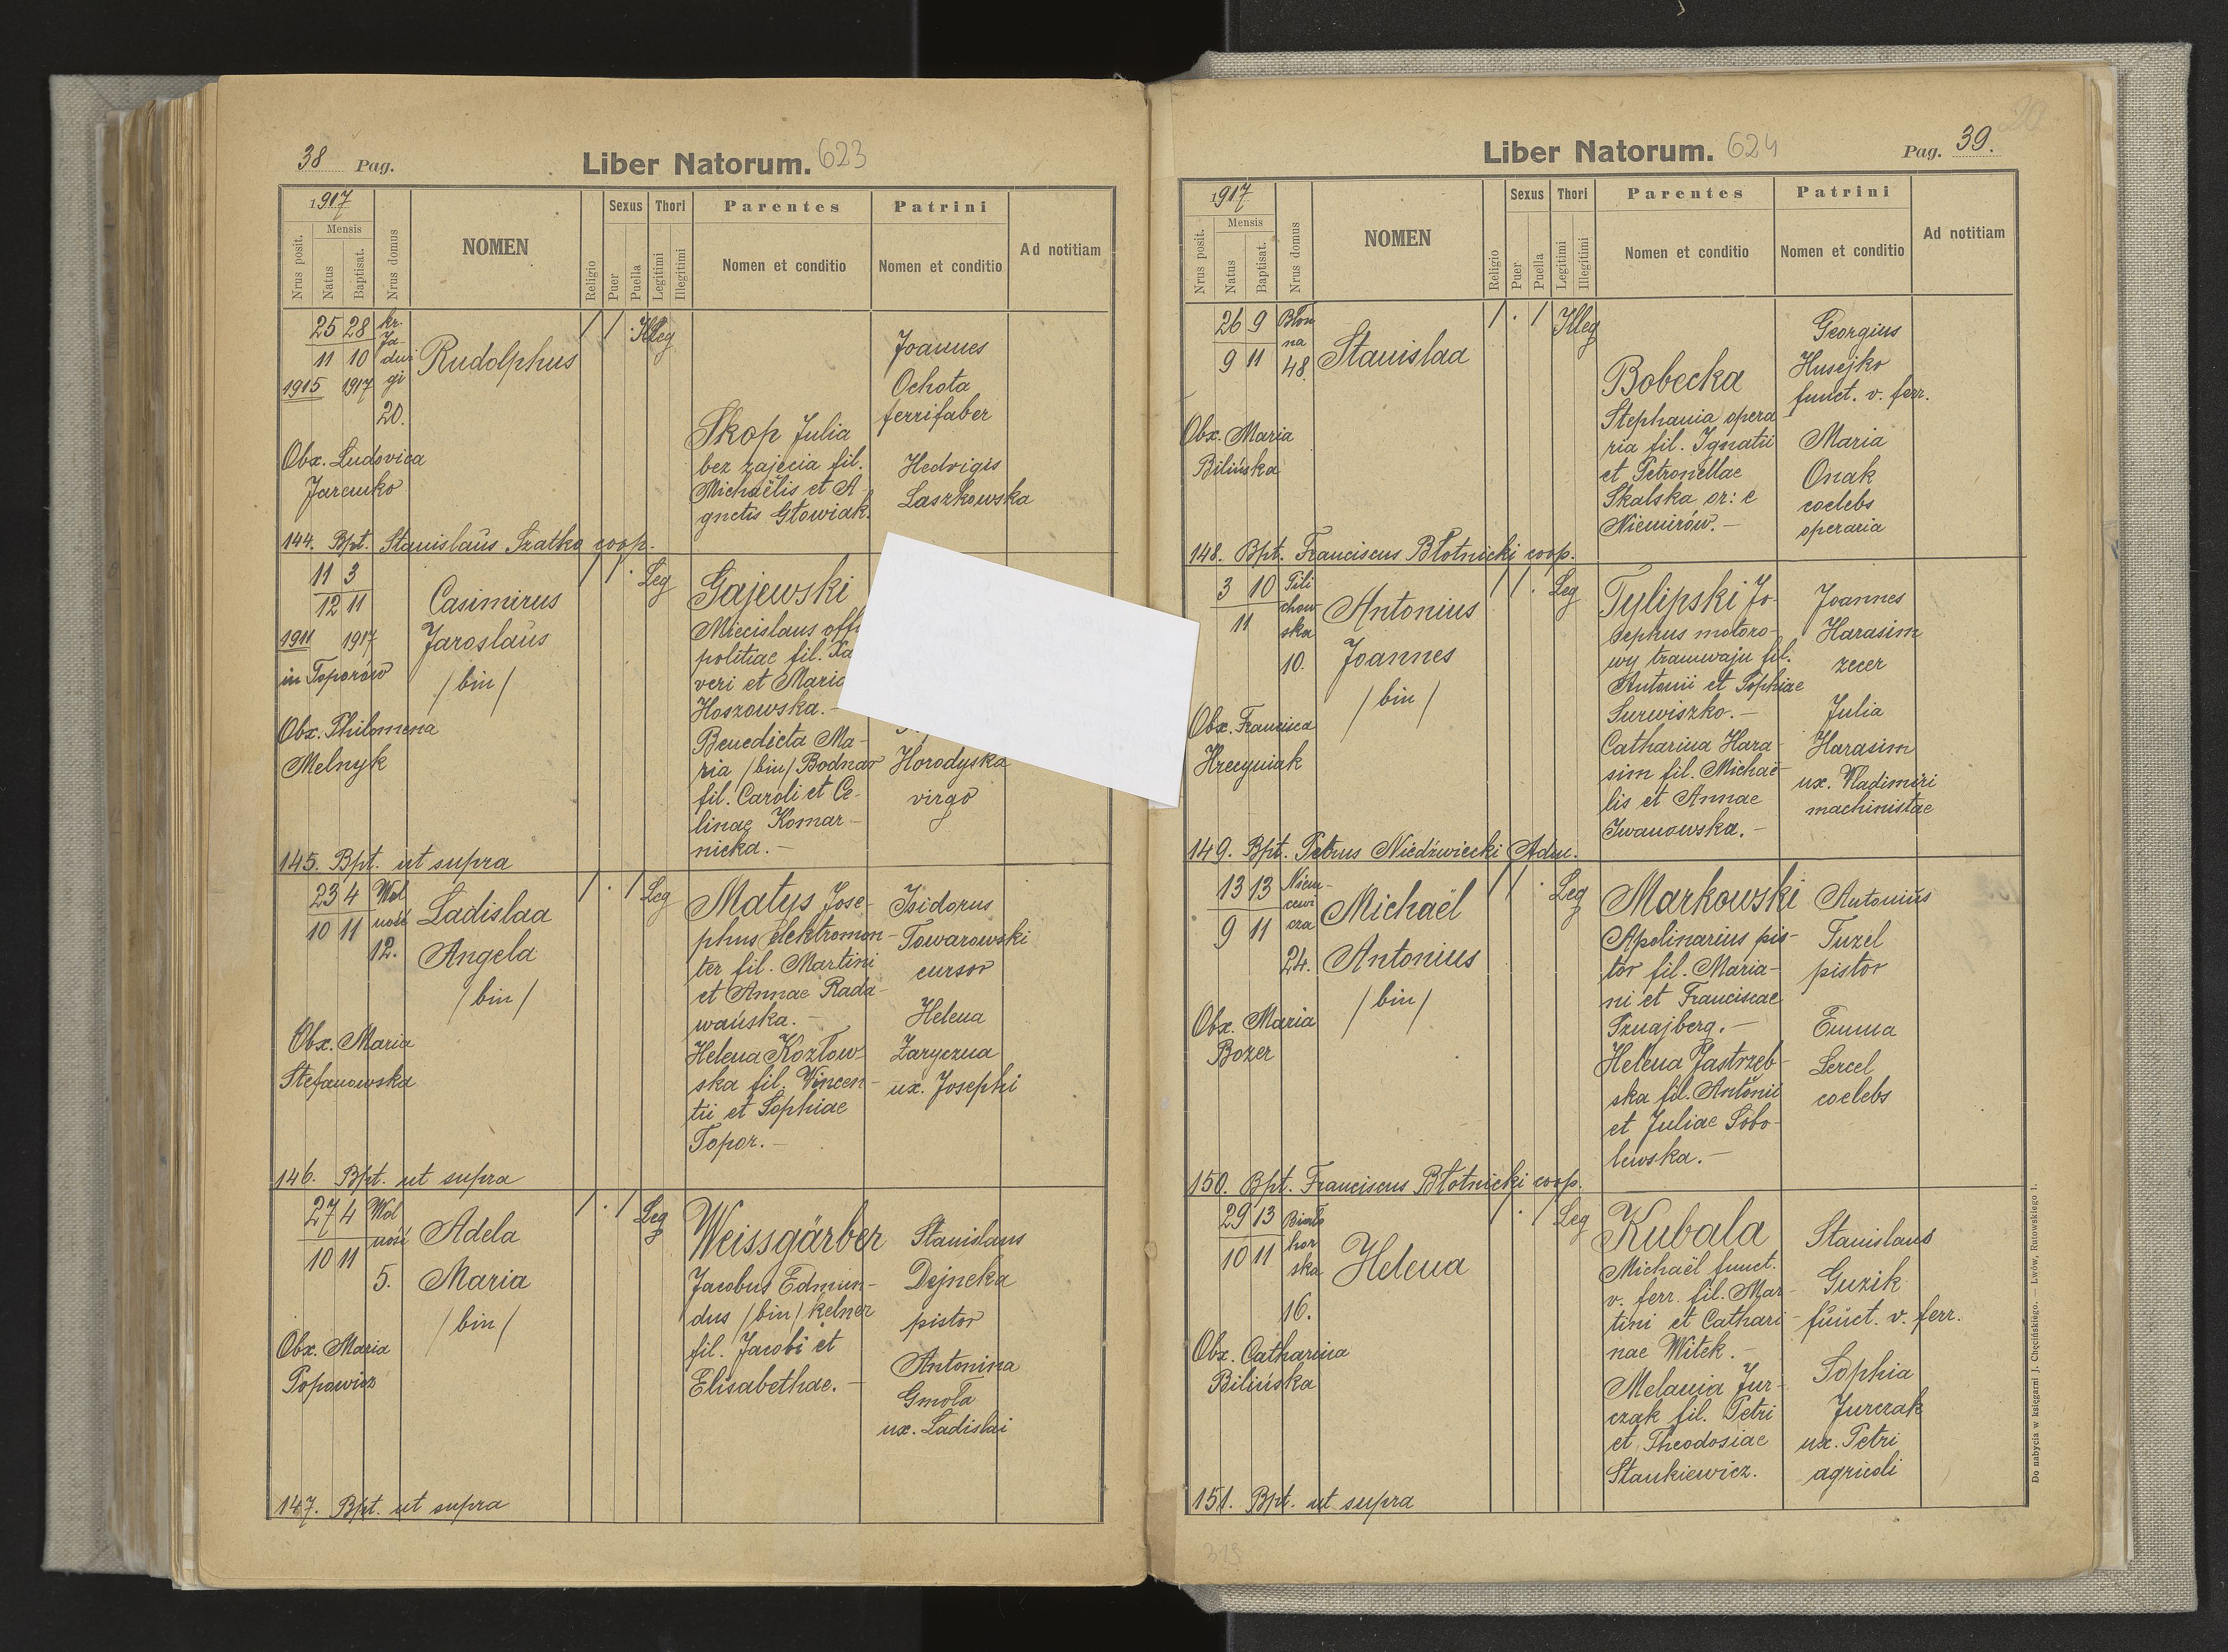 38 Pag.
Liber Natorum. 623
1917
Mensis
Nrus posit.
Natus
Baptisat.
Nrus domus
NOMEN
Religio
Sexus
Puer
Puella
Thori
Legitimi
Illegitimi
Parentes
Nomen et conditio
Patrini
Nomen et conditio
Ad notitiam
25 28
11 10
1915 1917
kr.
Ja
dwi
gi
20.
Rudolphus
Illeg
Obx. Ludovica
Jaremko
Skop Julia
bez zajęcia fil.
Michaëlis et A
gnetis Głowiak.
Joannes
Ochota
ferrifaber
Hedvigis
Laszkowska
144. Bpt. Stanislaus Szatko coop.
11 3
12 11
1911 1917
in Toporów
Casimirus
Jaroslaus
/bin/
Leg
Obx. Philomena
Melnyk
Gajewski
Miecislaus off
politiae fil. Xa
veri et Maria
Hoszowska.-
Benedicta Ma-
ria /bin/ Bodnar
fil. Caroli et Ce-
linae Komar-
nicka.-
Horodyska
virgo
145. Bpt. ut supra
23 4
10 11
Wol
ność
12.
Ladislaa
Angela
/bin/
Leg
Obx. Maria
Stefanowska
Matys Jose-
phus elektromon-
ter fil. Martini
et Annae Rada-
wańska.-
Helena Kozłow-
ska fil. Vincen-
tii et Sophiae
Topor.-
Isidorus
Towarowski
cursor
Helena
Zaryczna
ux. Josephi
146. Bpt. ut supra
27 4
10 11
Wol
ność
5.
Adela
Maria
/bin/
Leg
Obx. Maria
Popowicz
Weissgärber
Jacobus Edmun-
dus /bin/ kelner
fil. Jacobi et
Elisabethae.-
Stanislaus
Dejneka
pistor
Antonina
Gmoła
ux. Ladislai
147. Bpt. ut supra
Liber Natorum. 624
Pag. 39.
1917
Mensis
Nrus posit.
Natus
Baptisat.
Nrus domus
NOMEN
Religio
Sexus
Puer
Puella
Thori
Legitimi
Illegitimi
Parentes
Nomen et conditio
Patrini
Nomen et conditio
Ad notitiam
26 9
9 11
Błon
na
48.
Stanislaa
Illeg
Obx. Maria
Bilińska
Bobecka
Stephania opera
ria fil. Ignatii
et Petronellae
Skalska or: e
Niemirów.-
Georgius
Husejko
funct. v. ferr.
Maria
Onak
coelebs
operaria
148. Bpt. Franciscus Błotnicki coop.
3 10
11
Pili
chow
ska
10.
Antonius
Joannes
/bin/
Leg
Obx. Francisca
Hrecyniak
Tylipski Jo-
sephus motoro-
wy tramwaju fil.
Antonii et Sophiae
Surwiszko.-
Catharina Hara-
sim fil. Michaë-
lis et Annae
Iwanowska.-
Joannes
Harasim
zecer
Julia
Harasim
ux. Vladimiri
machinistae
149. Bpt. Petrus Niedźwiecki Adm.
13 13
9 11
Niem-
cewi
cza
24.
Michaël
Antonius
/bin/
Leg
Obx. Maria
Bozer
Markowski
Apolinarius pis-
tor fil. Maria-
ni et Franciscae
Sznajberg.-
Helena Jastrzeb-
ska fil. Antonii
et Juliae Sobo-
lewska.-
Antonius
Tuzel
pistor
Emma
Lercel
coelebs
150. Bpt. Franciscus Błotnicki coop.
29 13
10 11
hor
ska
16.
Helena
Leg
Obx. Catharina
Bilińska
Kubala
Michaël funct.
v. ferr. fil. Mar-
tini et Cathari-
nae Witek.-
Melania Jur-
czak fil. Petri
et Theodosiae
Stankiewicz.
Stanislaus
Guzik
funct. v. ferr.
Sophia
Jurczak
ux. Petri
agricoli
151. Bpt. ut supra
Do nabycia w księgarni J. Chęcińskiego. — Lwów, Rutowskiego 1.
319